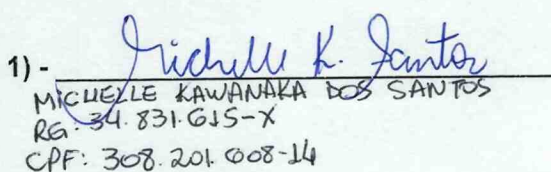 1) - Michelle K. Santos
MICHELLE KAWANAKA DOS SANTOS
RG: 34.831.615-X
CPF: 308.201.608-14